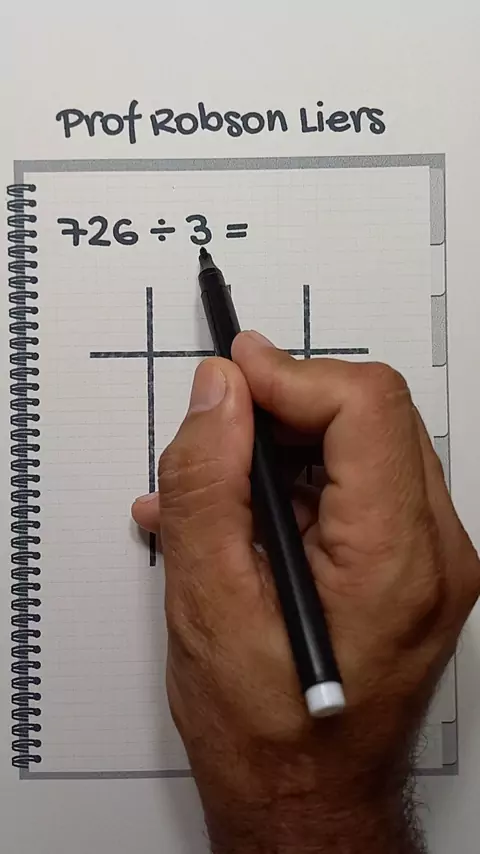 Prof Robson Liers
726 ÷ 3 =